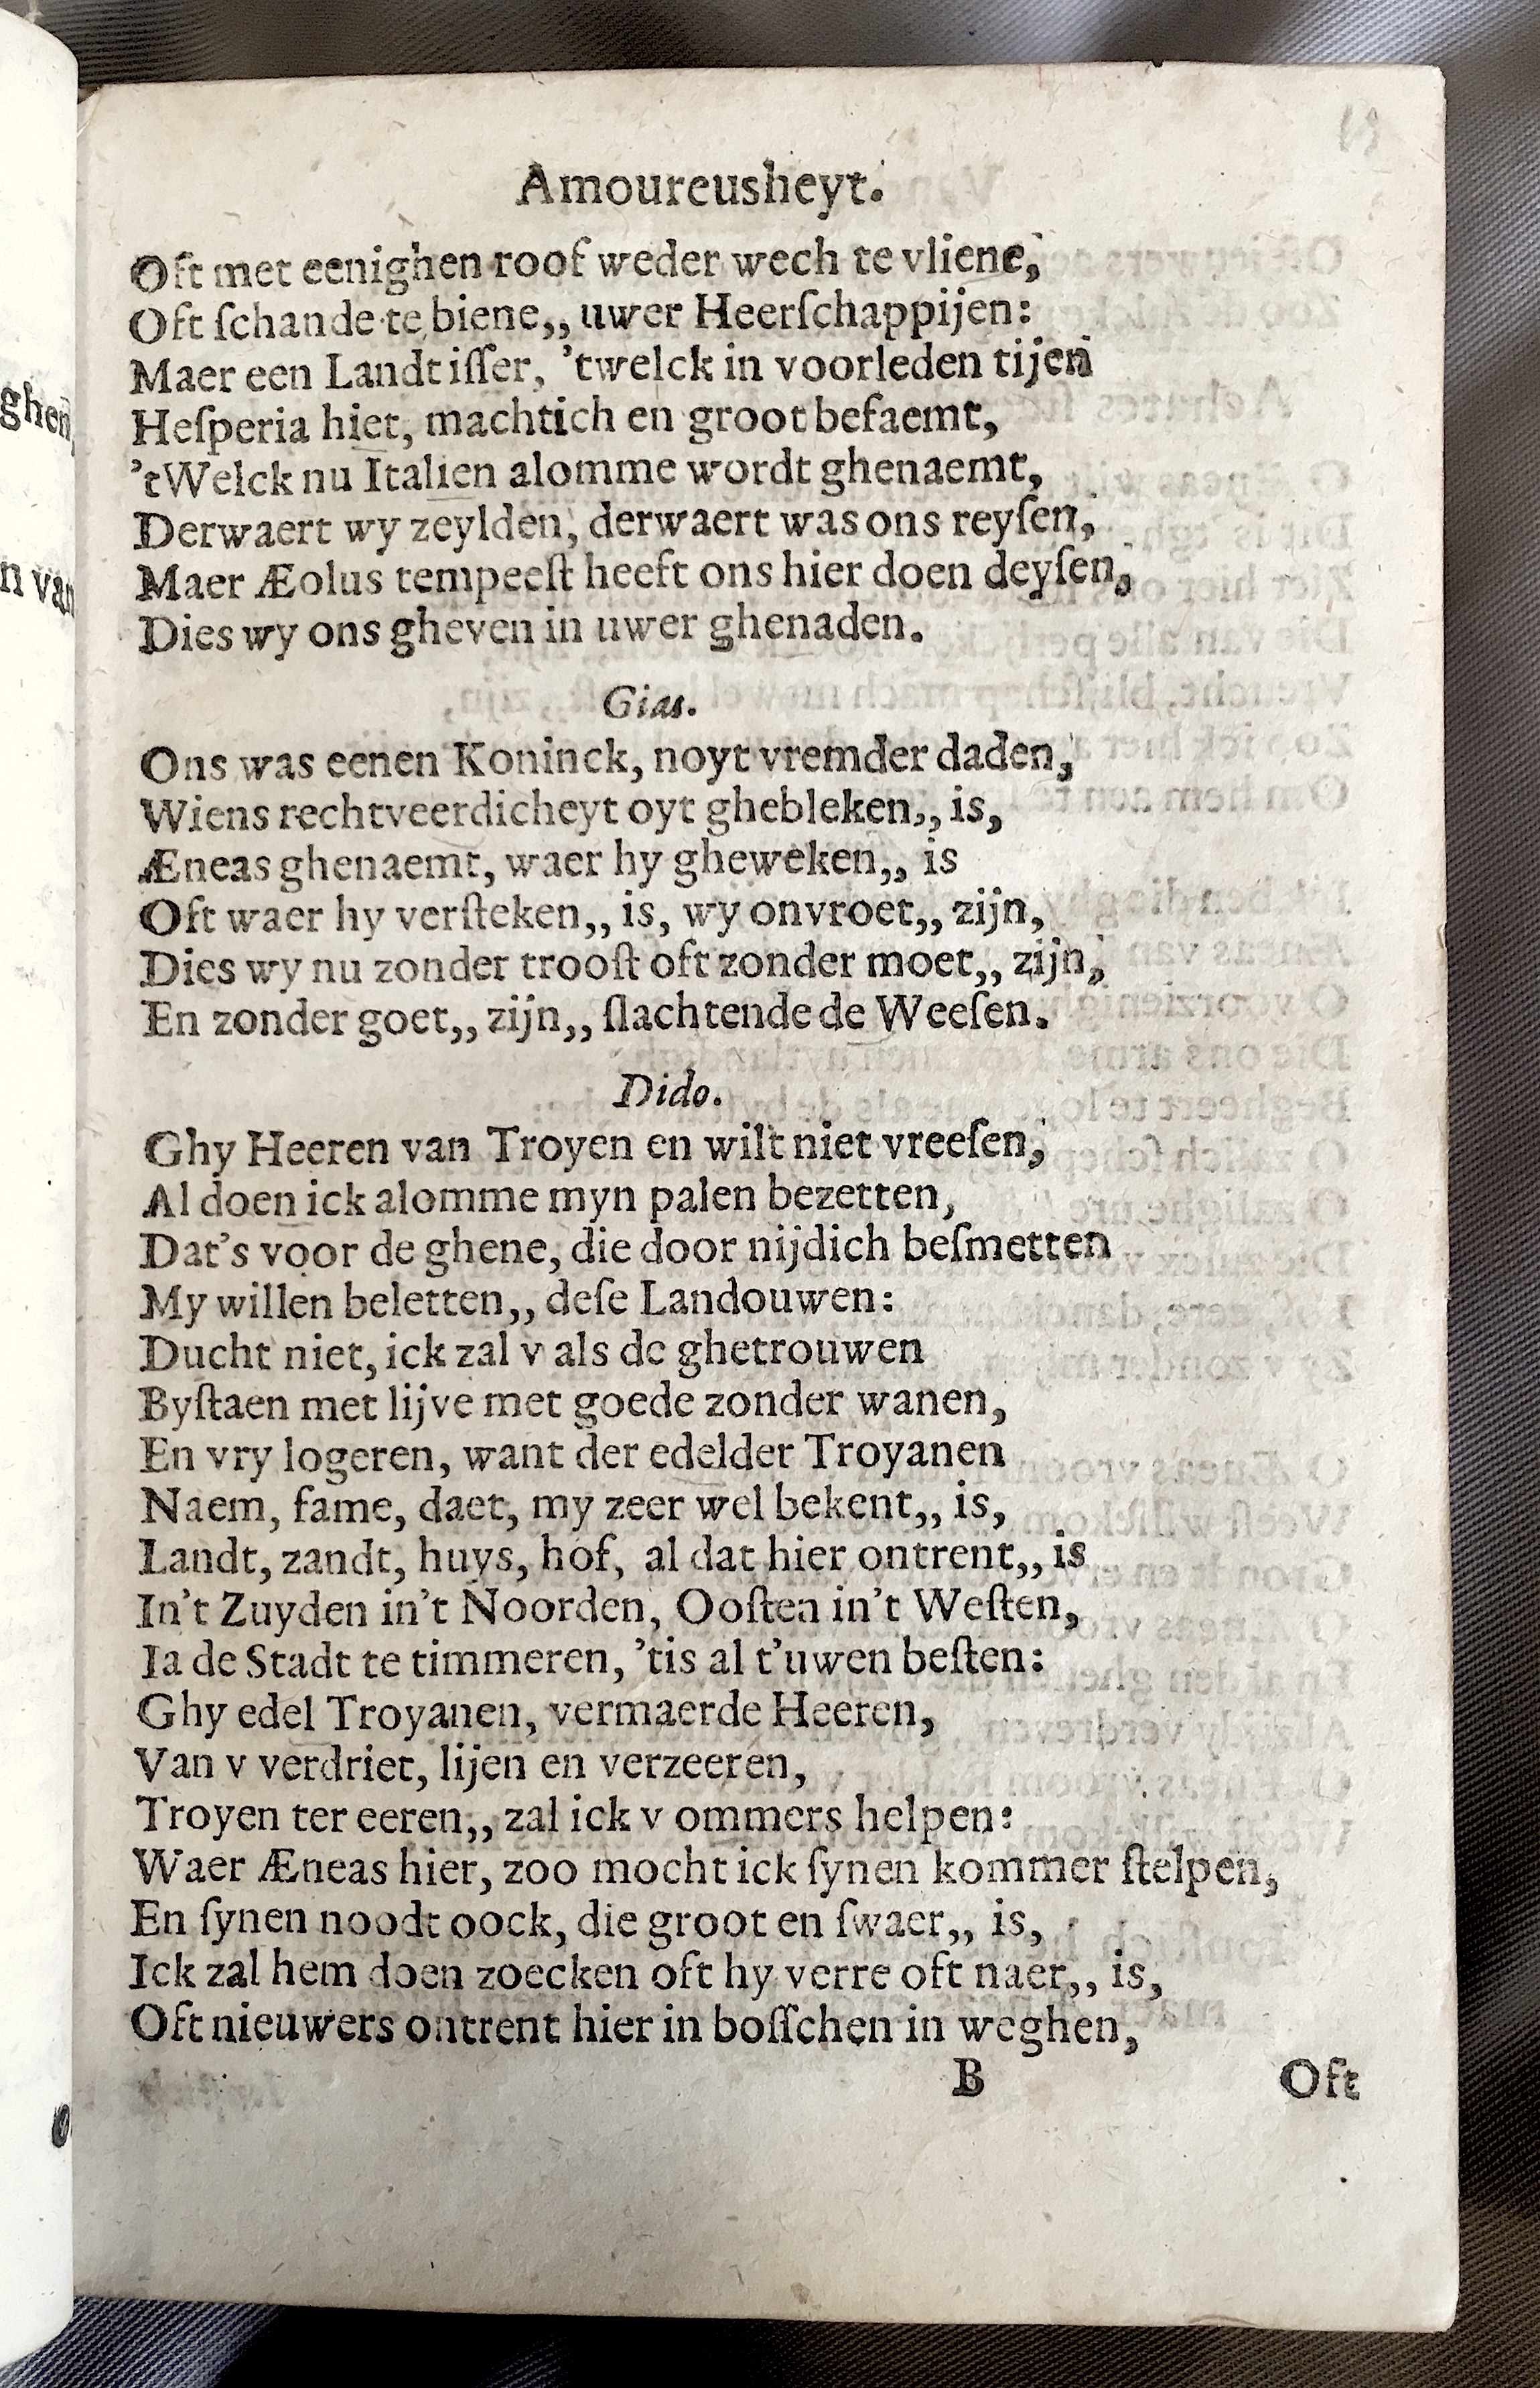 Amoureusheyt.
Oft met eenighen roof weder wech te vliene,
Oft ſchande te biene,, uwer Heerſchappijen:
Maer een Landt iſſer, 'twelck in voorleden tijen
Heſperia hiet, machtich en groot befaemt,
'tWelck nu Italien alomme wordt ghenaemt,
Derwaert wy zeylden, derwaert was ons reyſen,
Maer Æolus tempeeſt heeft ons hier doen deyſen,
Dies wy ons gheven in uwer ghenaden.
Gias.
Ons was eenen Koninck, noyt vremder daden,
Wiens rechtveerdicheyt oyt ghebleken,, is,
Æneas ghenaemt, waer hy gheweken,, is
Oft waer hy verſteken,, is, wy onvroet,, zijn,
Dies wy nu zonder trooſt oft zonder moet,, zijn,
En zonder goet,, zijn,, ſlachtende de Weeſen.
Dido.
Ghy Heeren van Troyen en wilt niet vreeſen,
Al doen ick alomme myn palen bezetten,
Dat's voor de ghene, die door nijdich beſmetten
My willen beletten,, deſe Landouwen:
Ducht niet, ick zal v als de ghetrouwen
Byſtaen met lijve met goede zonder wanen,
En vry logeren, want der edelder Troyanen
Naem, fame, daet, my zeer wel bekent,, is,
Landt, zandt, huys, hof, al dat hier ontrent,, is
In't Zuyden in't Noorden, Ooſten in't Weſten,
Ia de Stadt te timmeren, 'tis al t'uwen beſten:
Ghy edel Troyanen, vermaerde Heeren,
Van v verdriet, lijen en verzeeren,
Troyen ter eeren,, zal ick v ommers helpen:
Waer Æneas hier, zoo mocht ick ſynen kommer ſtelpen,
En ſynen noodt oock, die groot en ſwaer,, is,
Ick zal hem doen zoecken oft hy verre oft naer,, is,
Oft nieuwers ontrent hier in boſſchen in weghen,
B Oft